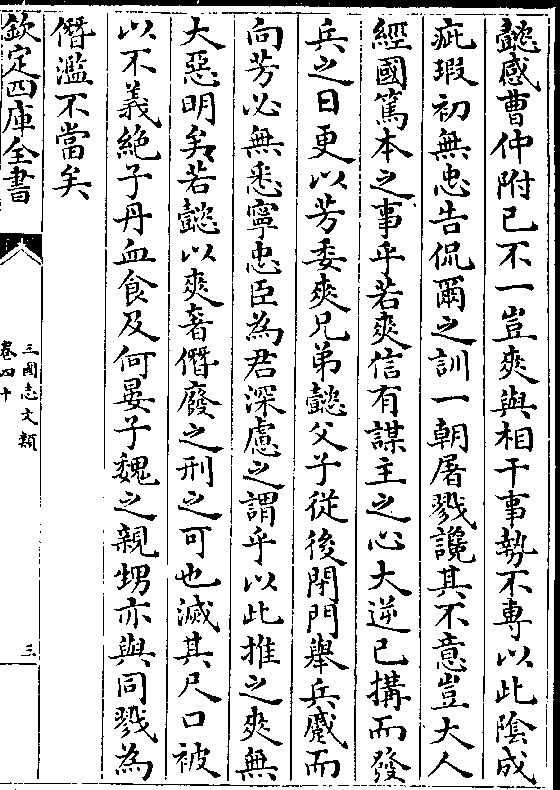 懿感曹仲附已不一豈爽與相干事勢不專以此陰成
疵瑕初無忠告侃爾之訓一朝屠戮讒其不意豈大人
經國篤本之事乎若爽信有謀主之心大逆已搆而發
兵之日更以芳委爽兄弟懿父子從後閉門舉兵蹙而
向芳必無悉寧忠臣為君深慮之謂乎以此推之爽無
大惡明矣若懿以爽奢僭廢之刑之可也滅其尺口被
以不義絕子丹血食及何晏子魏之親甥亦與同戮為
僭濫不當矣
欽定四庫全書
三國志文類
卷四十
三